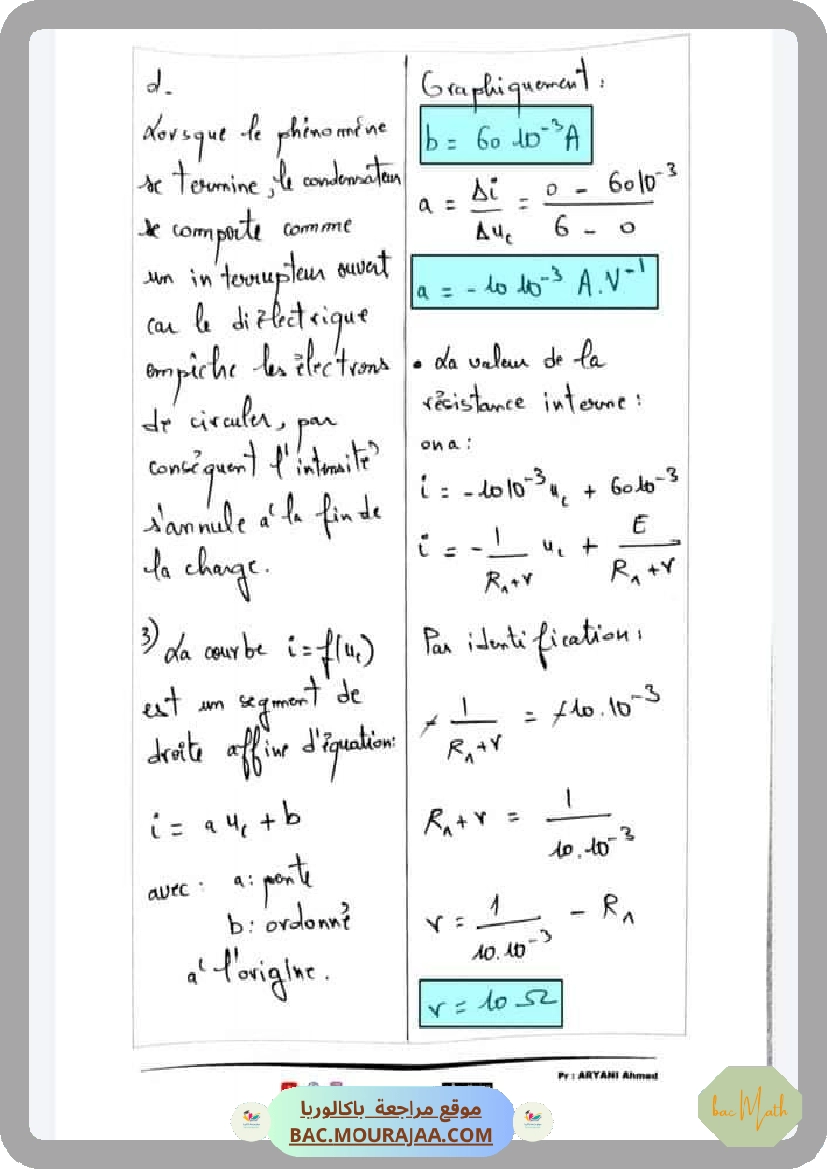 d.
Lorsque le phénomène
se termine, le condensateur
se comporte comme
un interrupteur ouvert
car le diélectrique
empêche les électrons
de circuler, par
conséquent l'intensité
s'annule à la fin de
la charge.
3) La courbe i = f(uc)
est un segment de
droite affine d'équation:
i = a uc + b
avec : a: pente
b: ordonné
à l'origine.
Graphiquement :
b = 60 10⁻³A
a = Δi/Δuc = (0 - 60 10⁻³)/(6 - 0)
a = - 10 10⁻³ A.V⁻¹
• La valeur de la
résistance interne :
on a :
i = -10 10⁻³ uc + 60 10⁻³
i = - 1/(R₁+r) uc + E/(R₁+r)
Par identification :
- 1/(R₁+r) = -10.10⁻³
R₁+r = 1/(10.10⁻³)
r = 1/(10.10⁻³) - R₁
r = 10 Ω
Pr : ARYANI Ahmed
موقع مراجعة باكالوريا
BAC.MOURAJAA.COM
bac Math